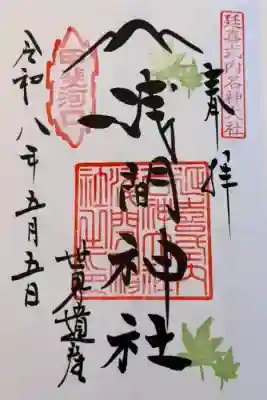 延喜式内名神大社
奉拝
浅間神社
世界遺産
甲斐河口
令和八年五月五日